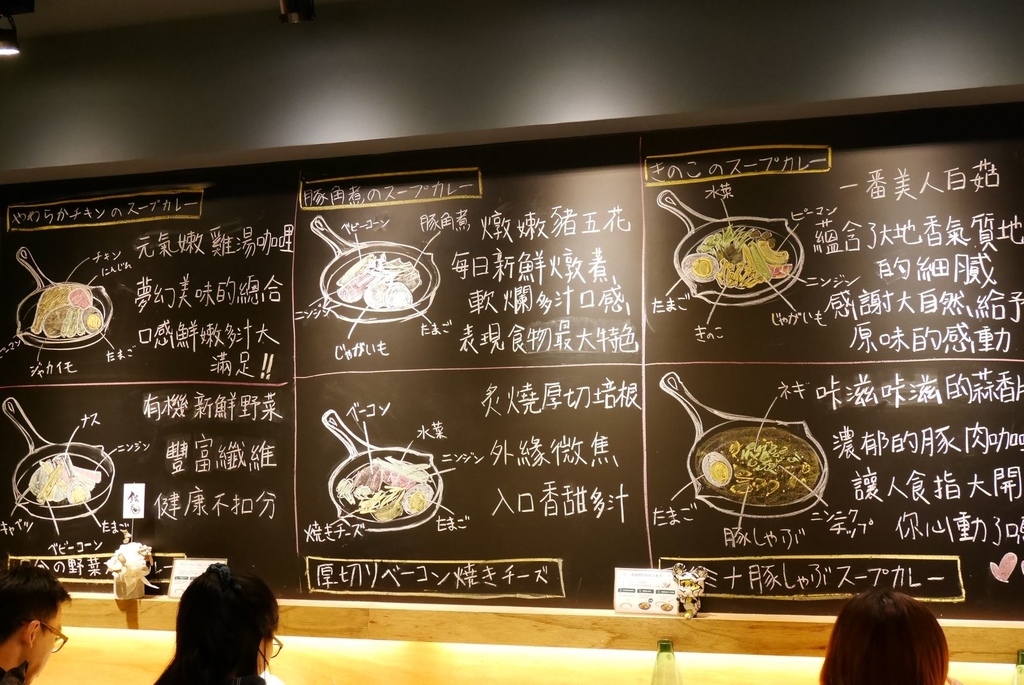 やわらかチキンのスープカレー
チキン
にんじん
ジャガイモ
たまご
元氣嫩雞湯咖哩
夢幻美味的總合
口感鮮嫩多汁大
滿足!!
豚角煮のスープカレー
ベビーコーン
豚角煮
ニンジン
じゃがいも
たまご
燉嫩豬五花
每日新鮮燉煮
軟爛多汁口感
表現食物最大特色
きのこのスープカレー
水菜
ピーマン
ニンジン
たまご
きのこ
じゃがいも
一番美人白菇
蘊含了大地香氣質地
的細膩
感謝大自然給予
原味的感動
ナス
ニンジン
キャベツ
たまご
ベビーコーン
有機新鮮野菜
豐富纖維
健康不扣分
の野菜
ベーコン
水菜
ニンジン
焼きチーズ
たまご
炙燒厚切培根
外緣微焦
入口香甜多汁
厚切りベーコン焼きチーズ
ネギ
たまご
豚しゃぶ
ニンニクチップ
咔滋咔滋的蒜香片
濃郁的豚肉咖
讓人食指大開
你心動了嗎
ミナ豚しゃぶスープカレー